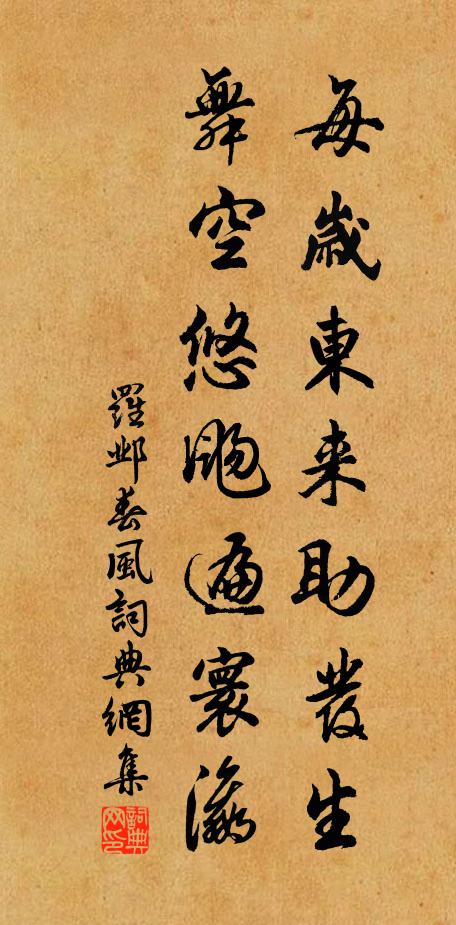 每歲東来助發生
舞空悠颺遍寰瀛
羅邺春風詞典網集
詞典网印